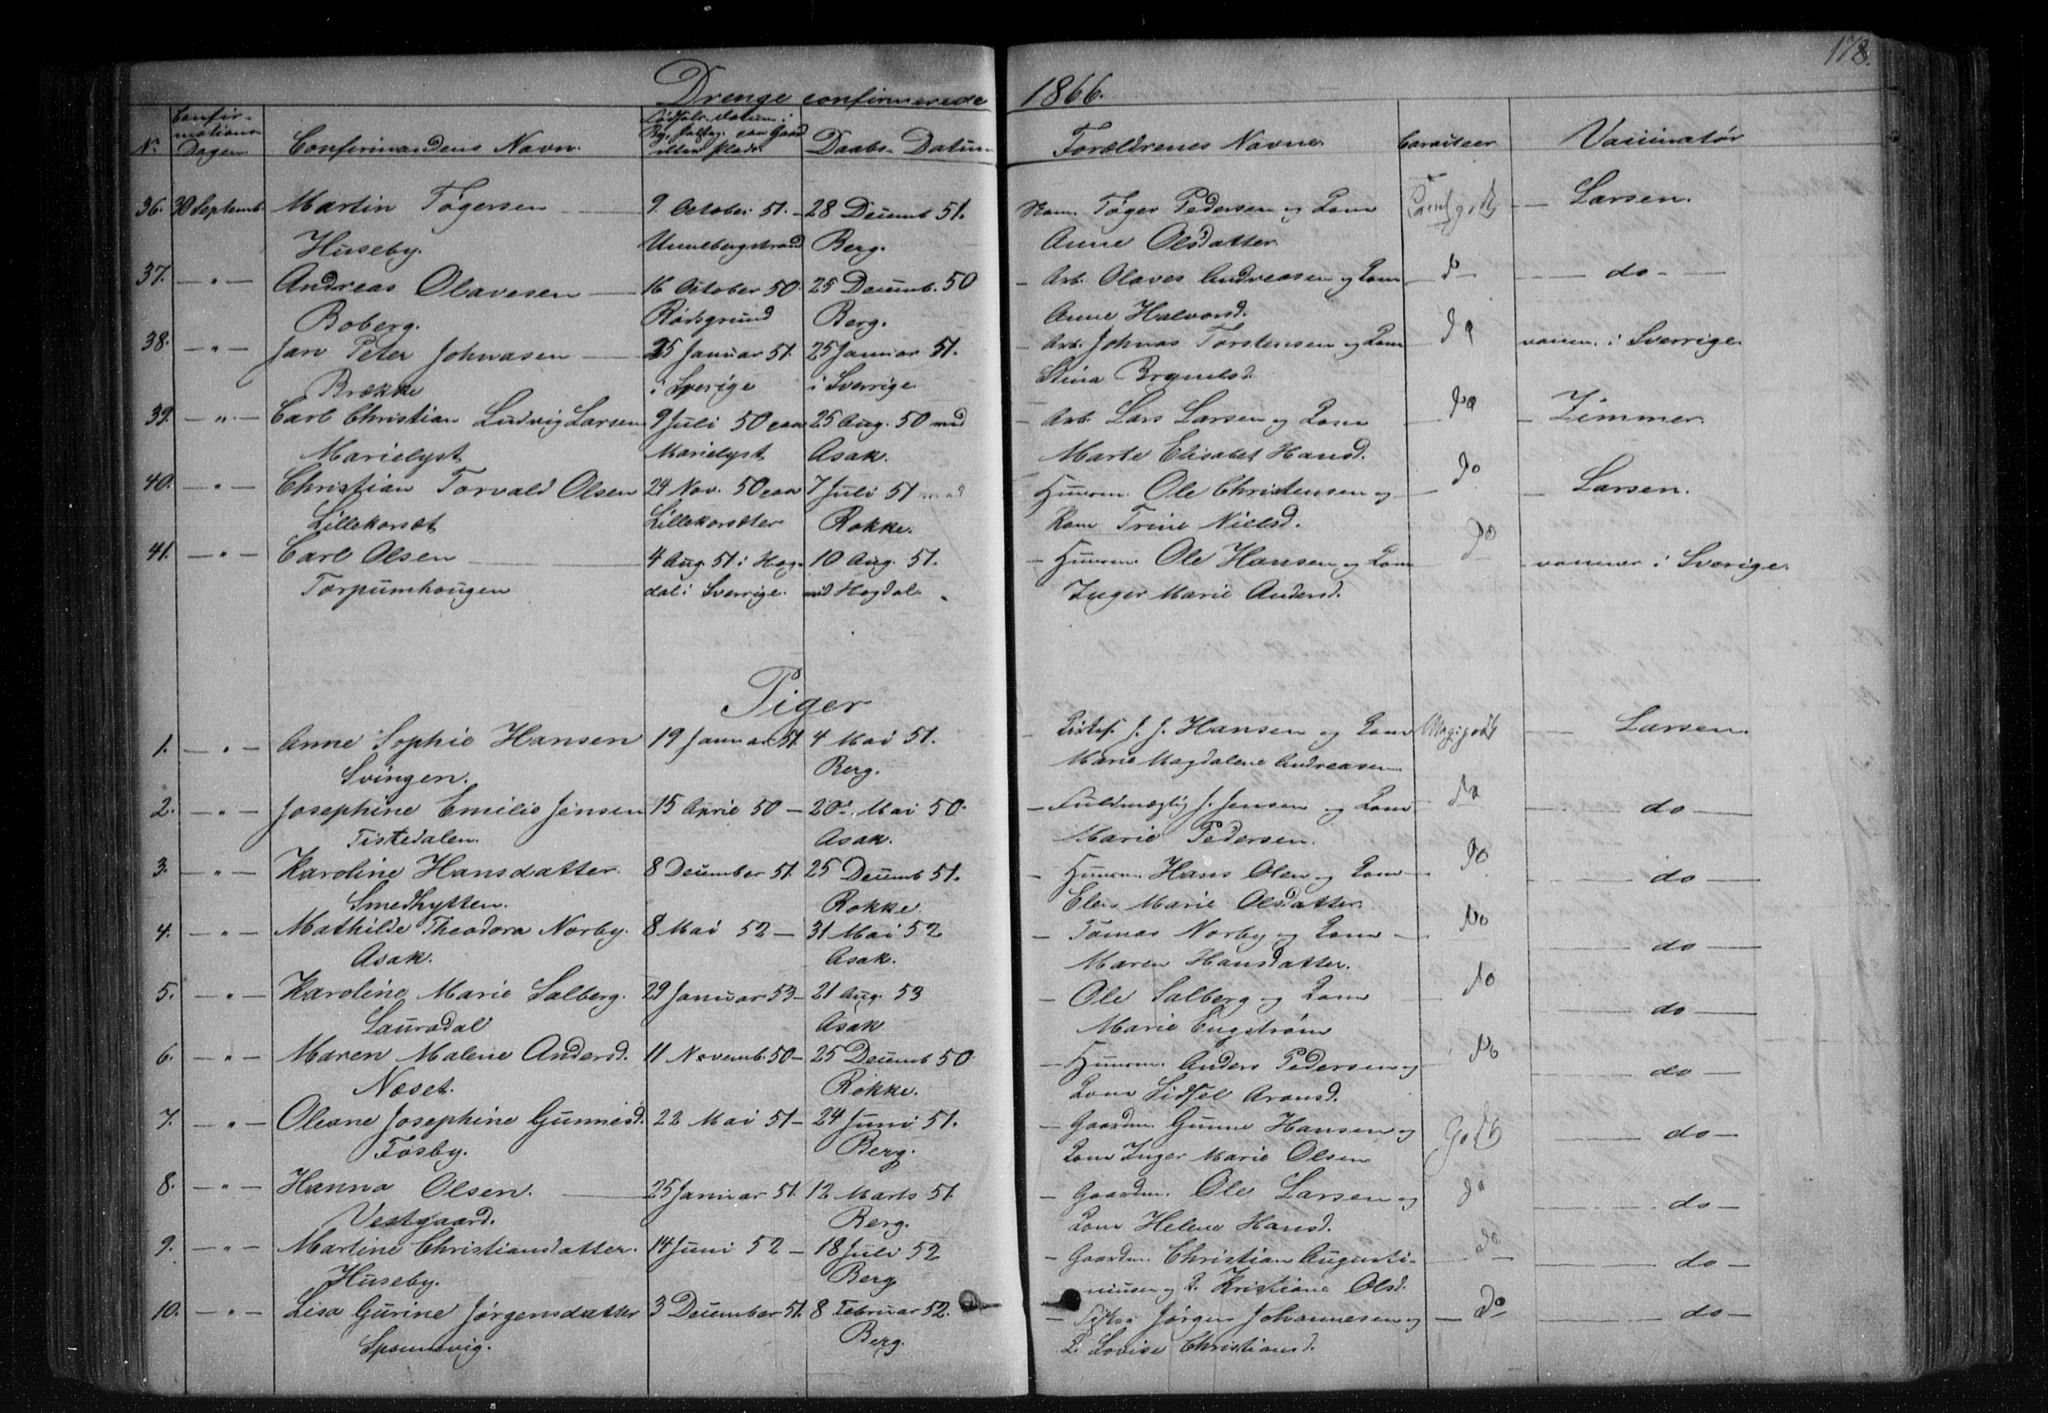 178.
Drenge confirmerede 1866.
No. Confirmations Dagen. Confirmandens Navn. Daabs-Datum Forældrenes Navne. Caracteer Vaccinatør
36. 30 Septemb. Martin Tøgersen 9 October 51. 28 Decemb 51. Tøger Pedersen og Kone Larsen.
Huseby. Unnebergstrand Berg. Anne Olsdatter.
37. — " — Andreas Olavesen 16 October 50. 25 Decemb. 50 Arb. Olaves Andreasen og Kone do — do —
Boberg. Rødsgrund Berg. Anne Halvorsd.
38. — " — Jan Peter Johnasen 25 Januar 51. 25 Januar 51. Arb. Johnas Torstensen og Kone do vaccin. i Sverrige.
Brække i Sverige i Sverrige Stina
39. — " — Carl Christian Ludvig Larsen 9 Juli 50 paa 25 Aug. 50 ved Arb. Lars Larsen og Kone do Zimmer.
Marielyst Marielyst Asak. Marte Elisabet Hansd.
40. — " — Christian Torvald Olsen 24 Nov. 50 paa 7 Juli 51 ved Huusm. Ole Christensen og do Larsen.
Lillekorsæt Lillekorsæter Rokke. Kone Trine Nielsd.
41. — " — Carl Olsen 4 Aug. 51 i Hog- 10 Aug. 51. Huusm. Ole Hansen og Kone do i Sverige.
Torpumhougen dal i Sverrige. ved Hogdal. Inger Marie Andersd.
Piger
1. — " — Anne Sophie Hansen 19 Januar 51. 4 Mai 51. J. J. Hansen og Kone Meg. godt Larsen.
Svingen. Berg. Marie Magdalene Andreasen
2. — " — Josephine Emilie Jensen 15 April 50 — 20de Mai 50. Fuldmægtig J. Jensen og Kone do — do —
Tistedalen. Asak. Marie Pedersen.
3. — " — Karoline Hansdatter. 8 December 51. 25 Decemb 51. Huusm. Hans Olsen og Kone do — do —
Smedhytten. Rokke. Elen Marie Olsdatter.
4. — " — Mathilde Theodora Norby. 8 Mai 52 — 31 Mai 52 Tomas Norby og Kone do — do —
Asak. Asak. Maren Hansdatter.
5. — " — Karoline Marie Salberg. 29 Januar 53 — 21 Aug. 53 Ole Salberg og Kone do — do —
Laurdal Asak Marie Engstrøm
6. — " — Maren Malene Andersd. 11 Novemb. 50 — 25 Decemb 50. Huusm. Anders Pedersen og do — do —
Næset. Rokke. Kone Sidsel Aronsd.
7. — " — Oleane Josephine Gunnesd. 22 Mai 51 — 24 Juni 51. Gaardm. Gunne Hansen og Godt — do —
Fosby. Berg. Kone Inger Marie Olsen
8. — " — Hanna Olsen. 25 Januar 51. 12 Marts 51. Gaardm. Ole Larsen og do — do —
Vestgaard. Berg. Kone Helene Hansd.
9. — " — Martine Christiansdatter. 14 Juni 52 — 18 Juli 52 Gaardm. Christian Augusti- do — do —
Huseby. Berg niusen og K. Kristiane Olsd.
10. — " — Lisa Gurine Jørgensdatter 3 December 51. 8 Februar 52. Jørgen Johannesen og do — do —
Sponnvig. Berg. K. Lovise Christiansd.